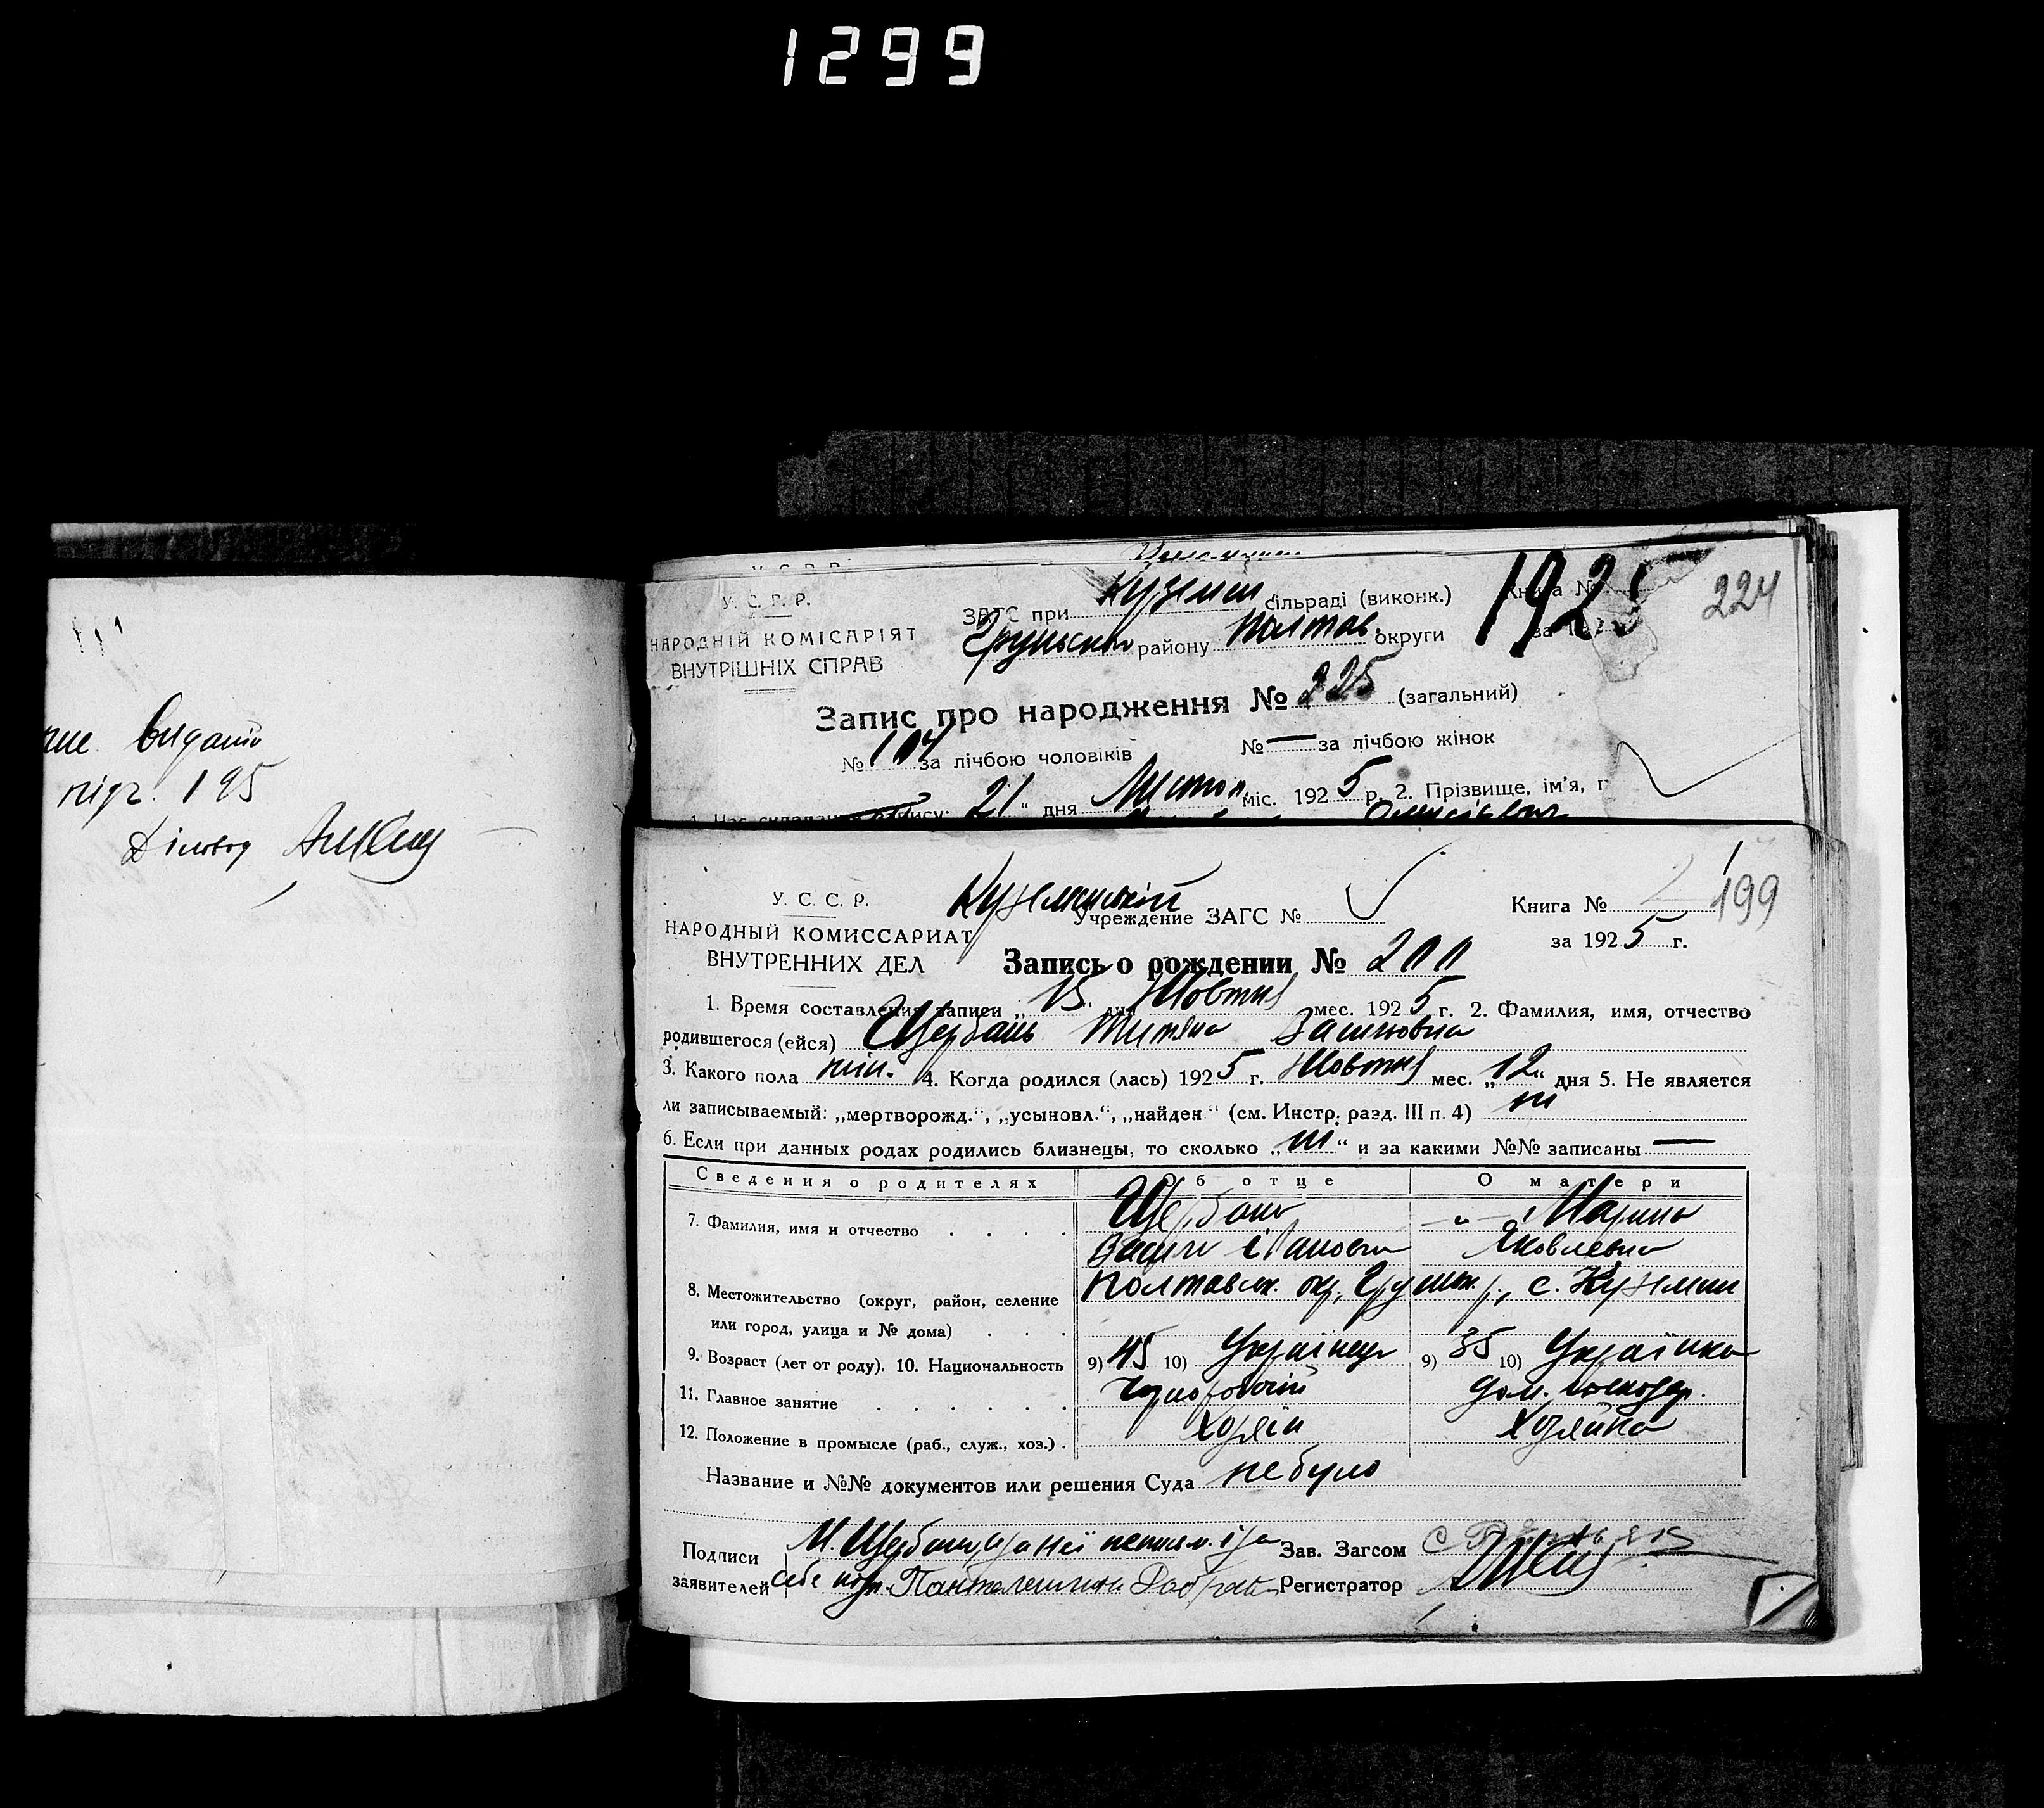 1299
видано
підг. 195
Діловод
У. С. Р. Р.
НАРОДНІЙ КОМІСАРІЯТ
ВНУТРІШНІХ СПРАВ
ЗАГС при Куземин. сільраді (виконк.)
Грунськ району Полтав. округи
Книга №
1925
224
Запис про народження № 225 (загальний)
№ 104 за лічбою чоловіків № — за лічбою жінок
21 " дня Листоп. міс. 1925 р. 2. Прізвище, ім'я, п
У. С. С. Р.
НАРОДНЫЙ КОМИССАРИАТ
ВНУТРЕННИХ ДЕЛ
Куземинський
Учреждение ЗАГС №
Книга № 199
за 1925 г.
Запись о рождении № 200
1. Время составления записи „ 15 " дня Жовтня мес. 1925 г. 2. Фамилия, имя, отчество
родившегося (ейся) Щербань Василовна
3. Какого пола жін. 4. Когда родился (лась) 1925 г. Жовтня мес. „ 12 " дня 5. Не является
ли записываемый: „мертворожд.", „усыновл.", „найден." (см. Инстр. разд. III п. 4) ні
6. Если при данных родах родились близнецы, то сколько „ ні " и за какими №№ записаны —
Сведения о родителях Об отце О матери
7. Фамилия, имя и отчество Щербань — „ — Марина
Яковлевна
8. Местожительство (округ, район, селение Полтавськ. окр, Грунськ. р., с. Куземин
или город, улица и № дома)
9. Возраст (лет от роду). 10. Национальность 9) 45 10) Українець 9) 35 10) Українка
11. Главное занятие дом. господар.
12. Положение в промысле (раб., служ., хоз.) Хозяїн Хозяйка
Название и №№ документов или решения Суда не було
Подписи М. Щербань, а за неї неписьм. і за Зав. Загсом
заявителей себе Регистратор